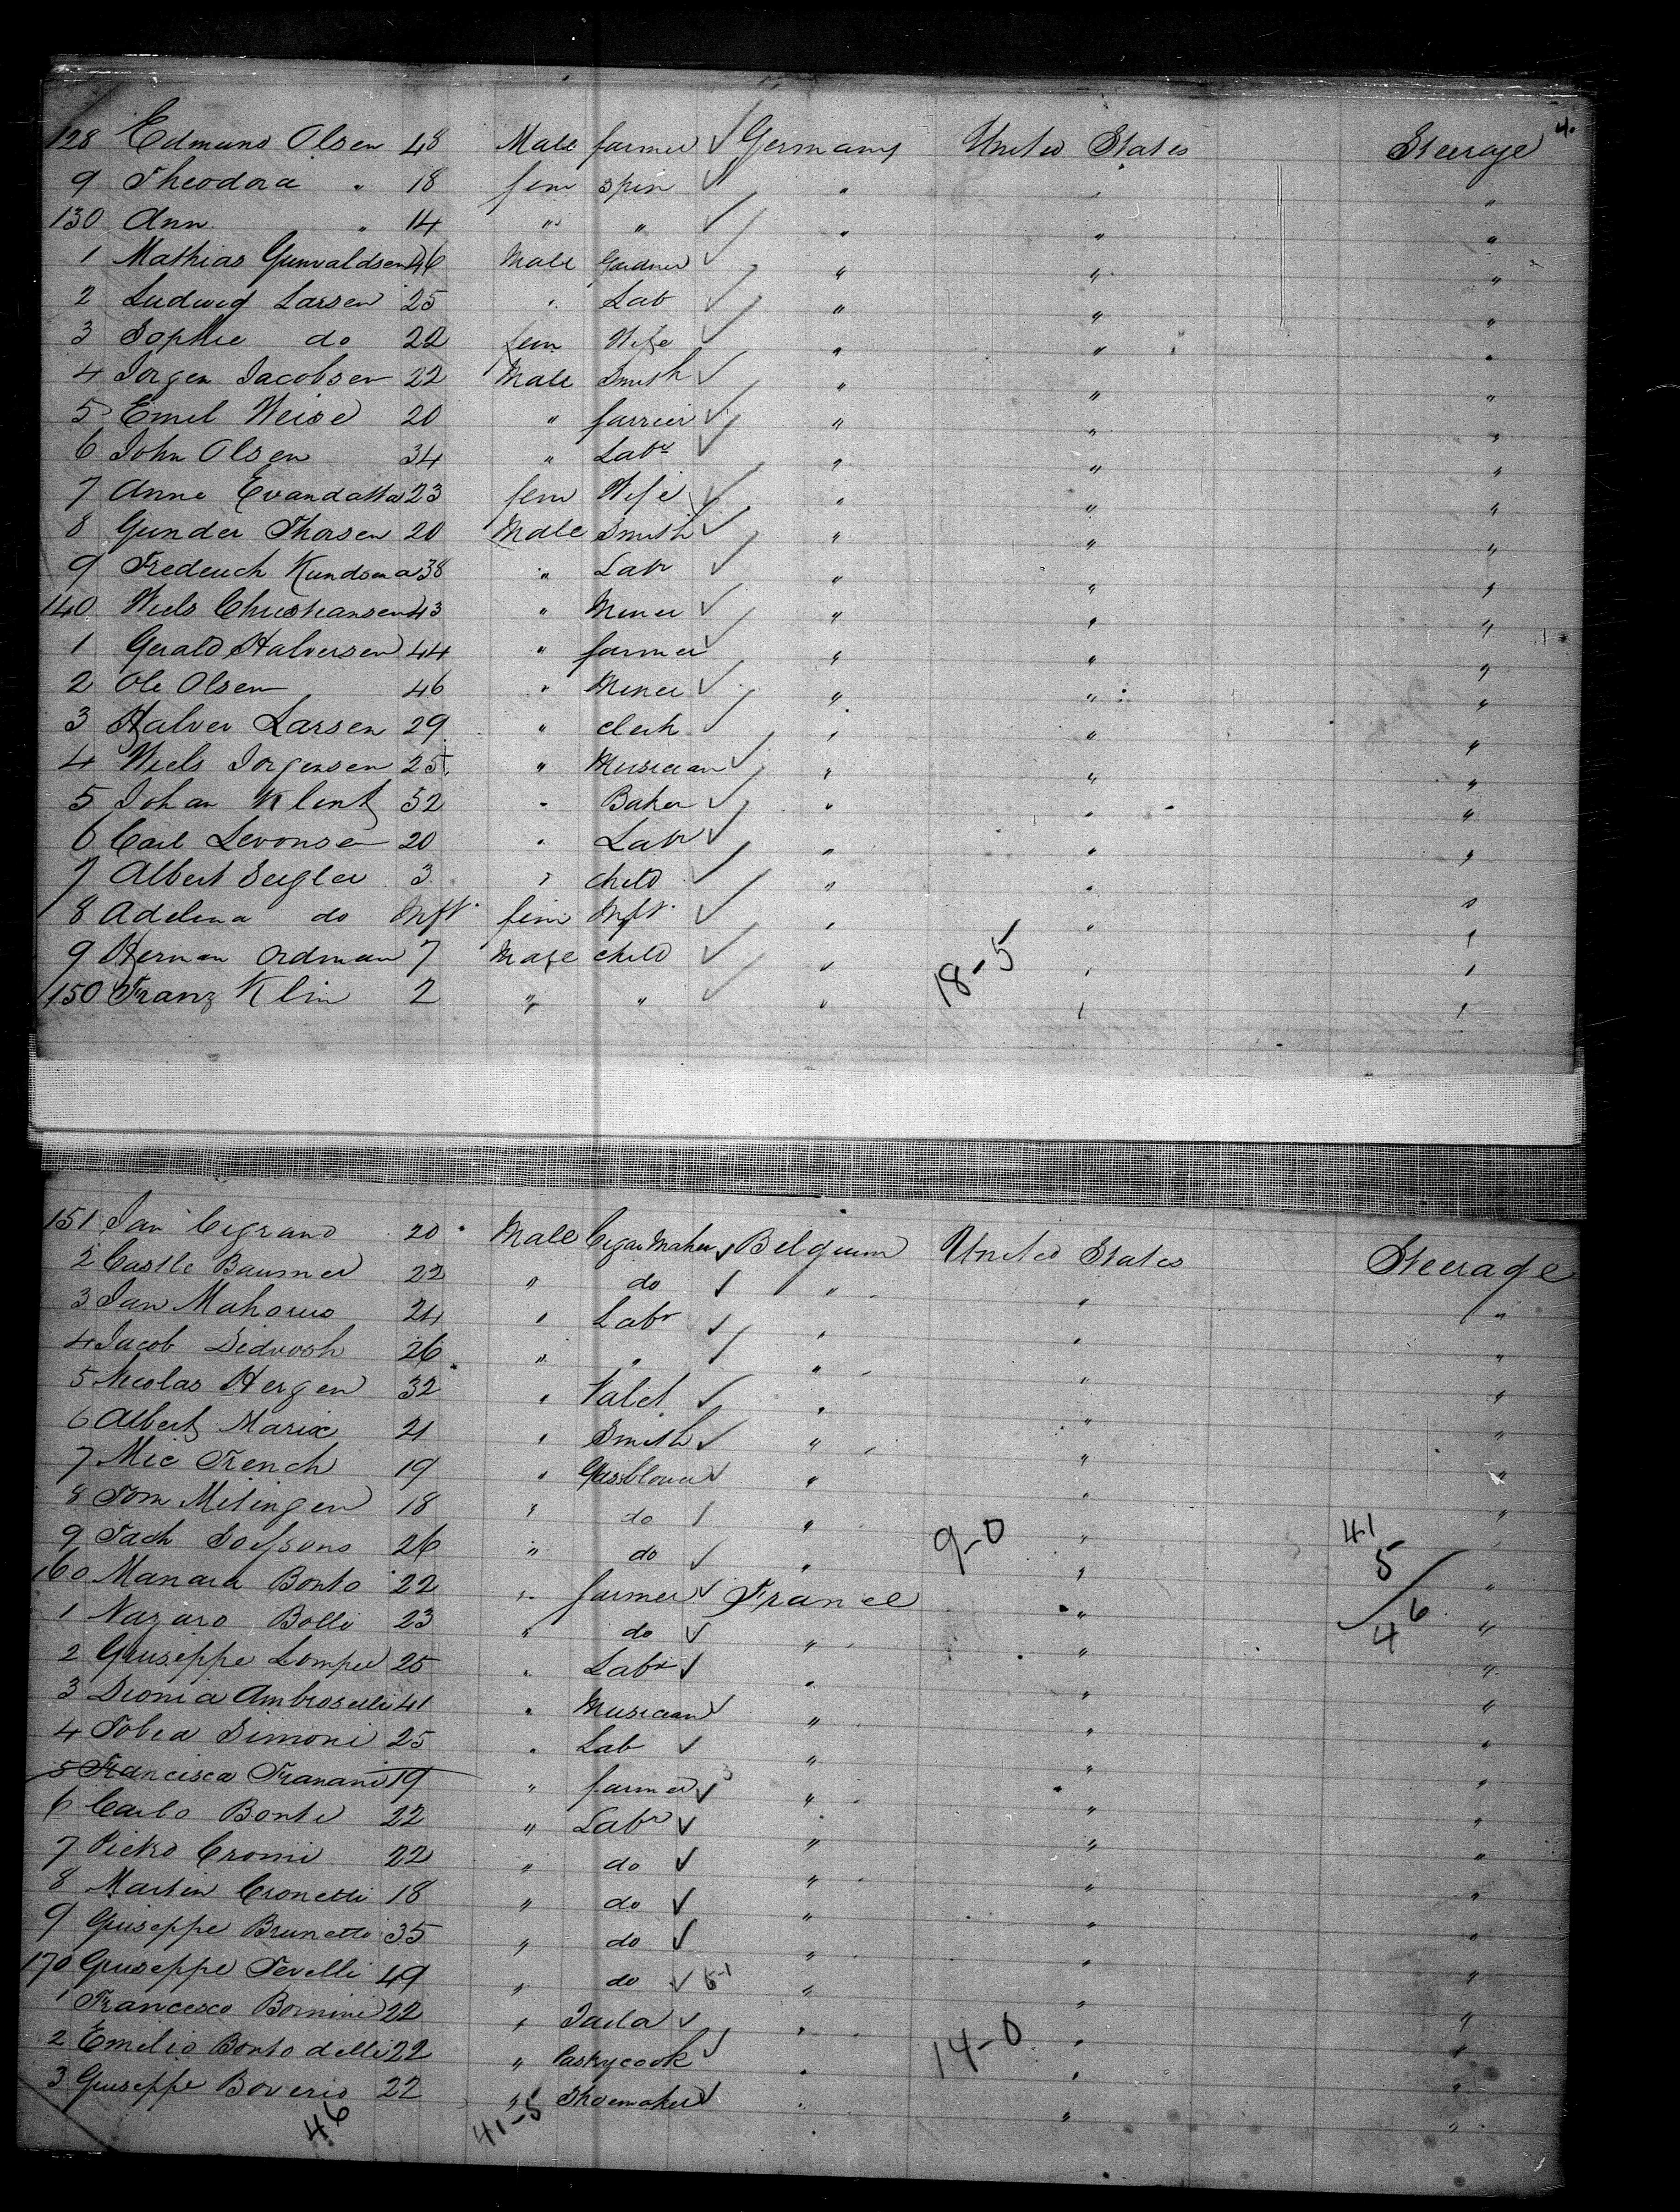 4.
128 Edmund Olsen 48 Male farmer ✓ Germany United States Steerage
9 Theodora " 18 fem spin ✓ " " "
130 Ann " 14 " " ✓ " " "
1 Mathias Gunvaldsen 46 Male Gardner ✓ " " "
2 Ludwig Larsen 25 " Lab ✓ " " "
3 Sophie do 22 fem Wife ✓ " " "
4 Jorgen Jacobsen 22 Male Smith ✓ " " "
5 Emil Weise 20 " farrier ✓ " " "
6 John Olsen 34 " Labr ✓ " " "
7 Anne Evandatta 23 fem Wife ✓ " " "
8 Gunder Thorsen 20 Male Smith ✓ " " "
9 Frederich 38 " Labr ✓ " " "
140 Niels Christiansen 43 " Miner ✓ " " "
1 Gerald Halversen 44 " farmer ✓ " " "
2 Ole Olsen 46 " Miner ✓ " " "
3 Halver Larsen 29 " Clerk ✓ " " "
4 Niels Jorgensen 25 " Musician ✓ " " "
5 Johan Klentz 52 " Baker ✓ " " "
6 Carl Levonsen 20 " Labr ✓ " " "
7 Albert Seigler 3 " child ✓ " " "
8 Adelina do Inft fem Inft ✓ " " "
9 Herman Ordman 7 Male child ✓ " 18-5 " "
150 Franz Klin 2 " " ✓ " " "
151 Jan Cigrand 20 Male Cigar Maker ✓ Belgium United States Steerage
2 Castle Baumer 22 " do ✓ " " "
3 Jan 24 " Labr ✓ " " "
4 Jacob 26 " " ✓ " " "
5 Nicolas Hergen 32 " Valet ✓ " " "
6 Albert Marix 21 " Smith ✓ " " "
7 Mic French 19 " Glassblower ✓ " " "
8 Tom Mitingen 18 " do ✓ " " "
9 26 " do ✓ " 9-0 " 41 5 "
160 Manara Bonto 22 " farmer ✓ France " 46 "
1 Nazaro Bolli 23 " do ✓ " " "
2 Giuseppe Lomper 25 " Labr ✓ " " "
3 Dionia Ambroselli 41 " Musician ✓ " " "
4 Tobia Simoni 25 " Lab ✓ " " "
5 Francisca Franani 19 " farmer ✓ 3 " " "
6 Carlo Bonte 22 " Labr ✓ " " "
7 Pietro Cromi 22 " do ✓ " " "
8 Martin Cronetti 18 " do ✓ " " "
9 Giuseppe Brunetto 35 " do ✓ " " "
170 Giuseppe Tevelli 49 " do ✓ 5-1 " " "
1 Francesco Bornini 22 " Tailor ✓ " " "
2 Emilio Bontodelli 22 " Pastrycook ✓ " 14-0 " "
3 Giuseppe Boverio 22 " Shoemaker ✓ " " "
46 41-5